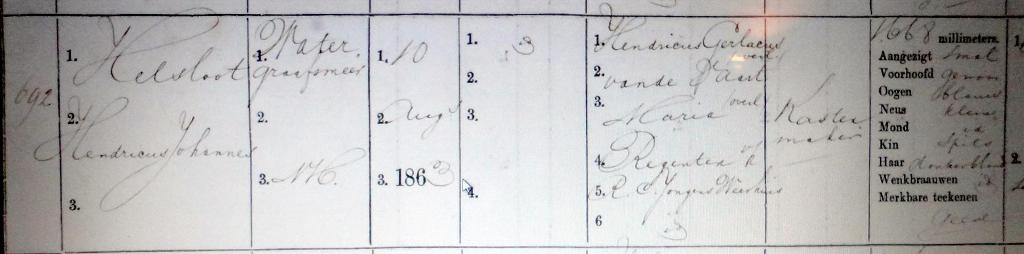 692
1. Helsloot
2. Hendricus Johannes
3.
1. Water
graafsmeer
2.
3. NH.
1. 10
2. Aug
3. 1863
1.
2.
3.
4.
1. Hendricus Gerlacus
overl
2. van de Vaart
3. Maria overl
4. Regenten of
5. R. C. Jongens Weeshuis
6
Kasten
maken
1668 millimeters.
Aangezigt smal
Voorhoofd gewoon
Oogen blauw
Neus klein
Mond id
Kin spits
Haar donkerblond
Wenkbraauwen id
Merkbare teekenen
geene
1.
2.